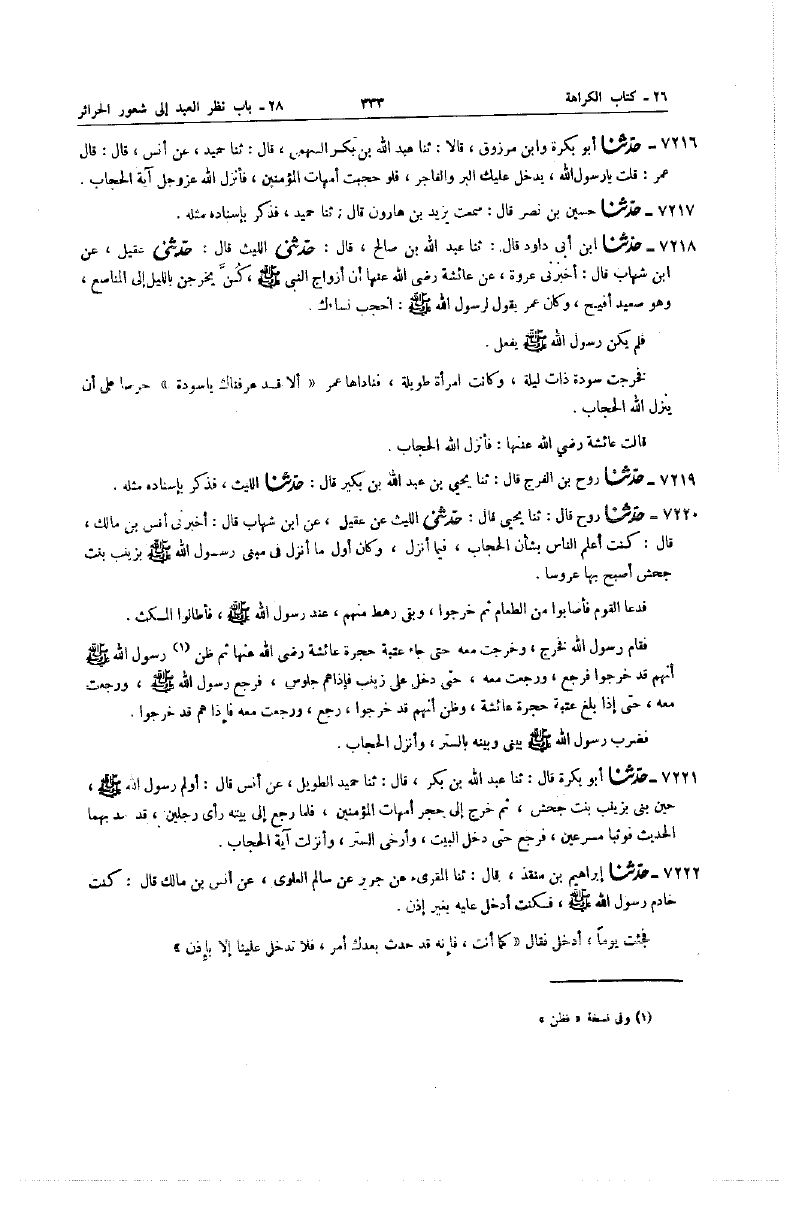 ٢٦ - كتاب الكراهة ٣٣٣ ٢٨ - باب نظر العبد إلى شعور الحرائر
٧٢١٦ - حدثنا أبو بكرة وابن مرزوق ، قالا : ثنا عبد الله بن بكر السهمى ، قال : ثنا حميد ، عن أنس ، قال : قال
عمر : قلت يارسول الله ، يدخل عليك البر والفاجر ، فلو حجبت أمهات المؤمنين ، فأنزل الله عزوجل آية الحجاب .
٧٢١٧ - حدثنا حسين بن نصر قال : سمعت يزيد بن هارون قال : ثنا حميد ، فذكر بإسناده مثله .
٧٢١٨ - حدثنا ابن أبى داود قال : ثنا عبد الله بن صالح ، قال : حدثنى الليث قال : حدثنى عقيل ، عن
ابن شهاب قال : أخبرنى عروة ، عن عائشة رضى الله عنها أن أزواج النبى ﷺ ، كُنَّ يخرجن بالليل إلى المناصع ،
وهو صعيد أفيح ، وكان عمر يقول لرسول الله ﷺ : احجب نساءك .
فلم يكن رسول الله ﷺ يفعل .
فخرجت سودة ذات ليلة ، وكانت امرأة طويلة ، فناداها عمر « ألا قد عرفناك ياسودة » حرصا على أن
ينزل الله الحجاب .
قالت عائشة رضي الله عنها : فأنزل الله الحجاب .
٧٢١٩ - حدثنا روح بن الفرج قال : ثنا يحيي بن عبد الله بن بكير قال : حدثنا الليث ، فذكر بإسناده مثله .
٧٢٢٠ - حدثنا روح قال : ثنا يحيى قال : حدثنى الليث عن عقيل ، عن ابن شهاب قال : أخبرنى أنس بن مالك ،
قال : كنت أعلم الناس بشأن الحجاب ، فيما أنزل ، وكان أول ما أنزل فى مبنى رسول الله ﷺ بزينب بنت
جحش أصبح بها عروسا .
فدعا القوم فأصابوا من الطعام ثم خرجوا ، وبقى رهط منهم ، عند رسول الله ﷺ ، فأطالوا المكث .
فقام رسول الله فخرج ، وخرجت معه حتى جاء عقبة حجرة عائشة رضى الله عنها ثم ظن (١) رسول الله ﷺ
أنهم قد خرجوا فرجع ، ورجعت معه ، حتى دخل على زينب فإذاهم جلوس ، فرجع رسول الله ﷺ ، ورجعت
معه ، حتى إذا بلغ عقبة حجرة عائشة ، وظن أنهم قد خرجوا ، رجع ، ورجعت معه فإذا هم قد خرجوا .
فضرب رسول الله ﷺ بينى وبينه بالستر ، وأنزل الحجاب .
٧٢٢١ - حدثنا أبو بكرة قال : ثنا عبد الله بن بكر ، قال : ثنا حميد الطويل ، عن أنس قال : أولم رسول الله ﷺ ،
حين بنى بزينب بنت جحش ، ثم خرج إلى حجر أمهات المؤمنين ، فلما رجع إلى بيته رأى رجلين ، قد بهما
الحديث فوثبا مسرعين ، فرجع حتى دخل البيت ، وأرخى الستر ، وأنزلت آية الحجاب .
٧٢٢٢ - حدثنا إبراهيم بن منقذ ، قال : ثنا المقرىء عن جرير عن سالم العلوى ، عن أنس بن مالك قال : كنت
خادم رسول الله ﷺ ، فكنت أدخل عليه بغير إذن .
فجئت يوماً ، أدخل فقال « كما أنت ، فإنه قد حدث بعدك أمر ، فلا تدخل علينا إلا بإذن »
(١) وفى نسخة « فظن »